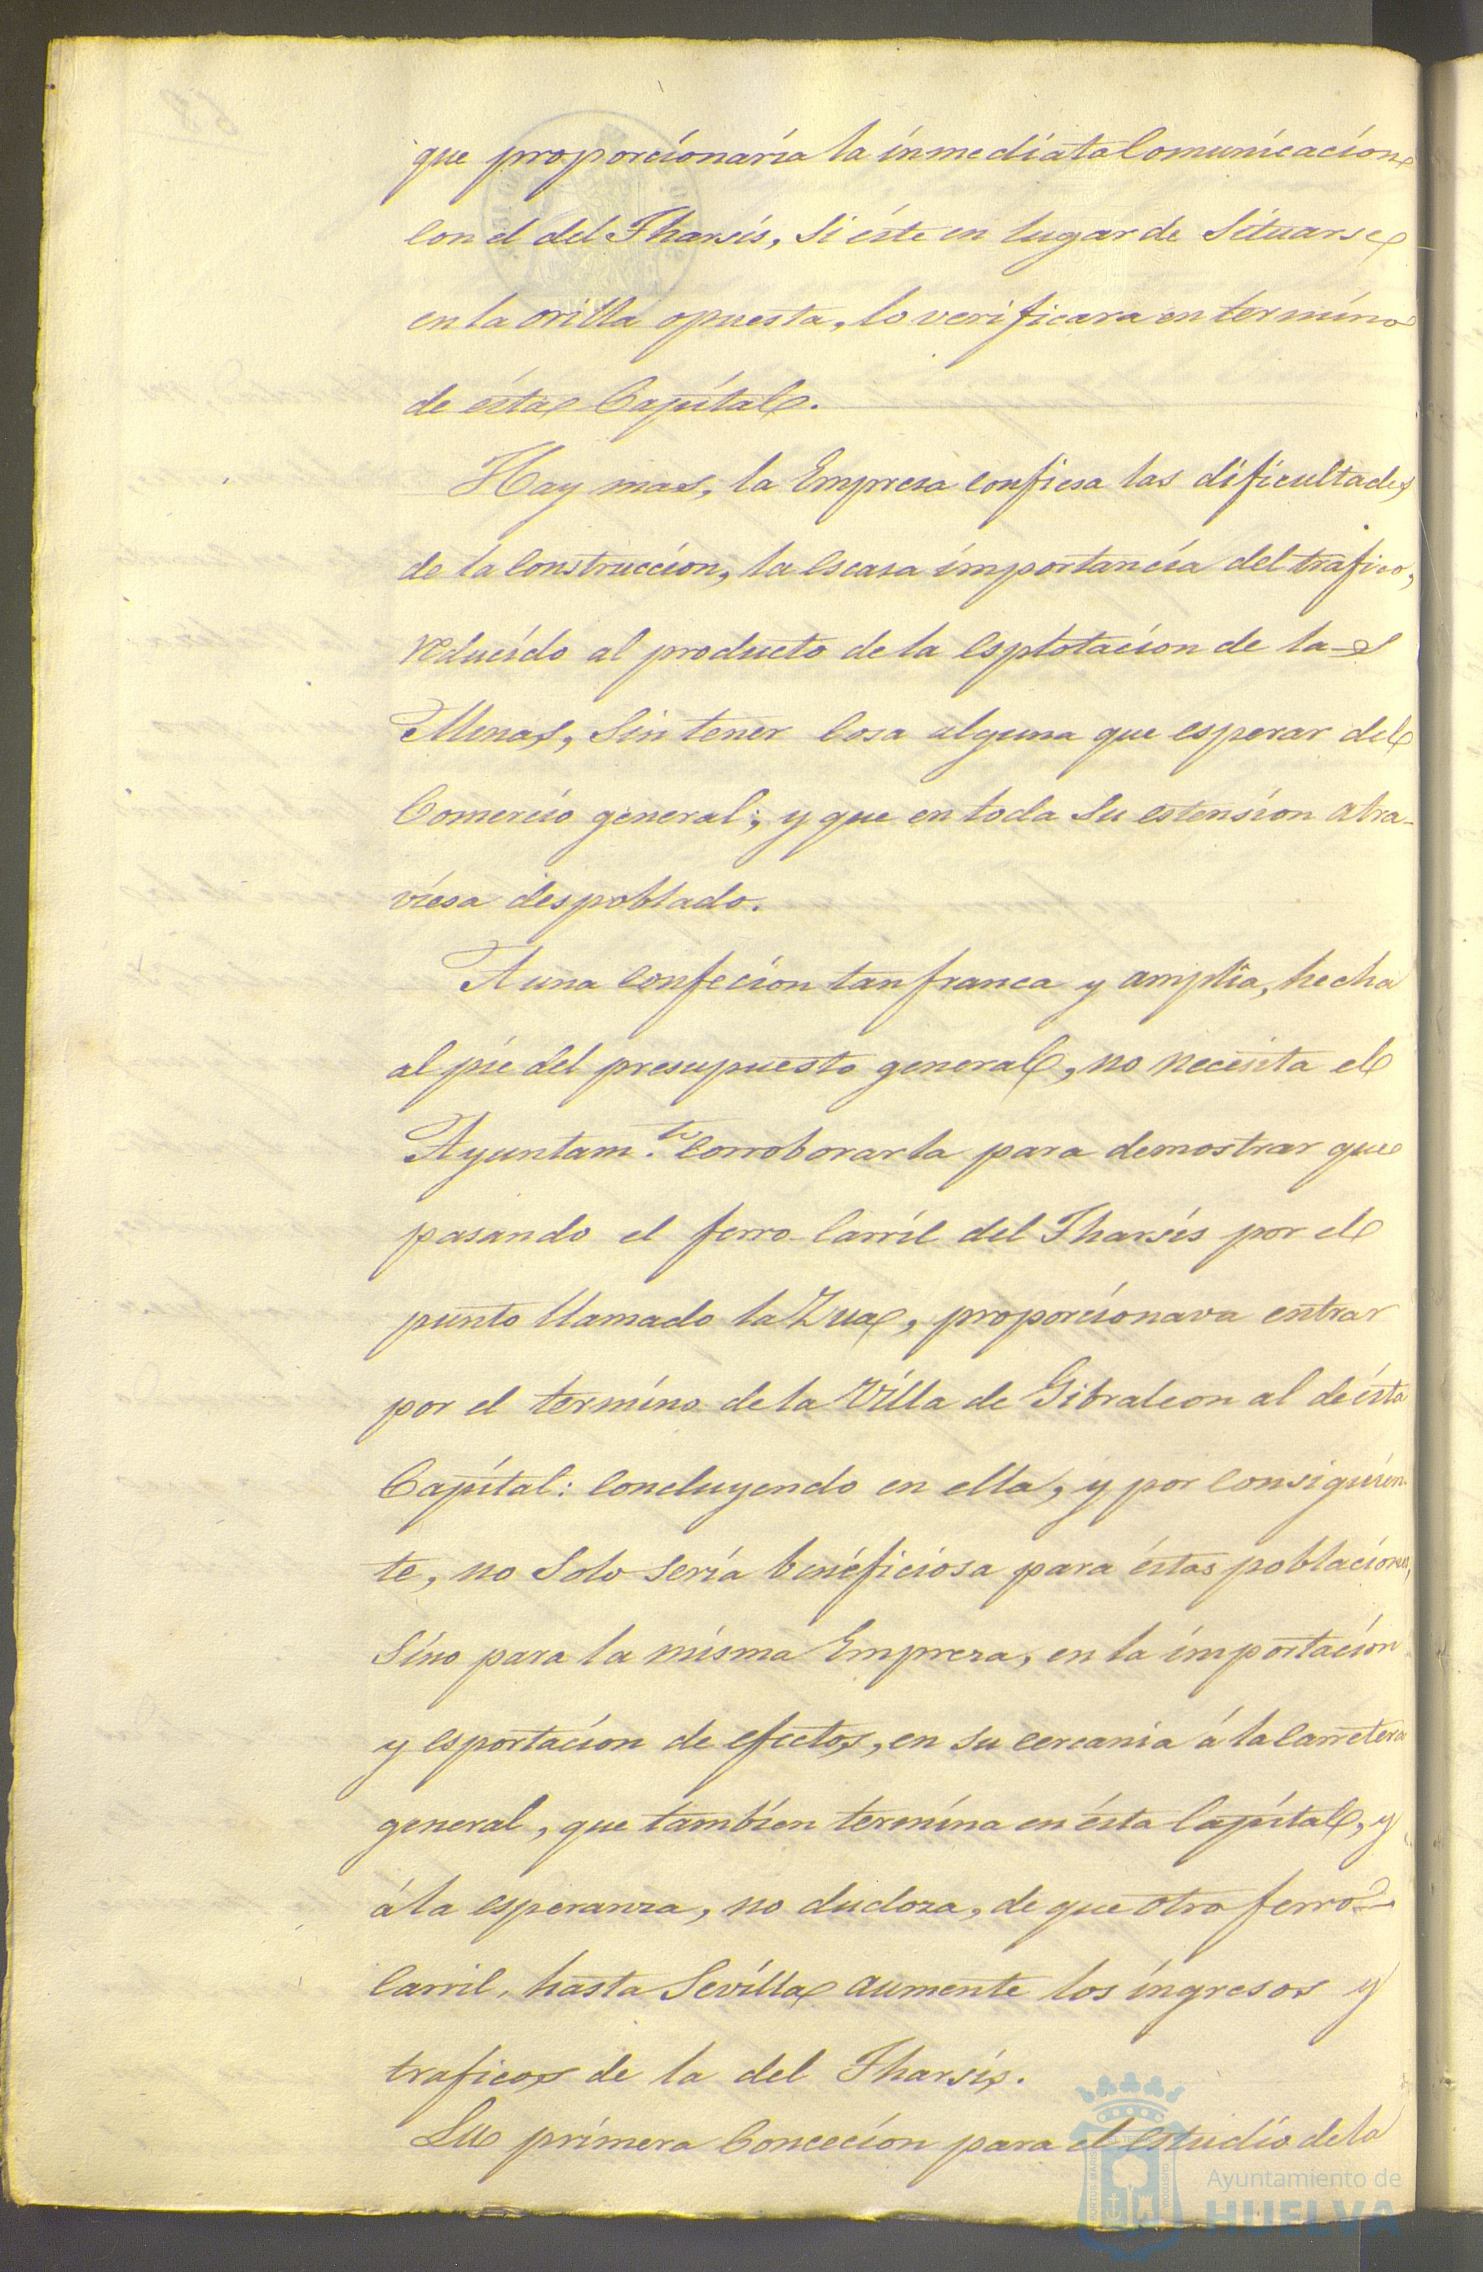 que proporcionaría la inmediata Comunicacion
con el del Tharsis, si éste en lugar de Situarse
en la orilla opuesta, lo verificara en termino
de ésta Capítal.
Hay mas, la Empresa confiesa las dificultades
de la construccion, la escasa importancia del trafico,
reducido al producto de la esplotacion de las
Menas, Sin tener cosa alguna que esperar del
Comercio general; y que en toda Su estension atra-
viesa despoblado.
A una confecion tan franca y amplia, hecha
al pie del presupuesto general, no necesita el
Ayuntam.to corroborarla para demostrar que
pasando el ferro-carril del Tharsis por el
punto llamado la Zua, proporcionava entrar
por el termino de la Villa de Gibraleon al de ésta
Capítal: concluyendo en ella, y por consiguien-
te, no Solo sería beneficiosa para éstas poblaciones,
Sino para la misma Empreza, en la importacion
y esportacion de efectos, en su cercania á la Carretera
general, que tambien termina en ésta Capítal, y
á la esperanza, no dudoza, de que otro ferro-
carril, hasta Sevilla aumente los ingresos y
traficos de la del Tharsis.
Su primera Concecion para el estudio de la
Ayuntamiento de
HUELVA